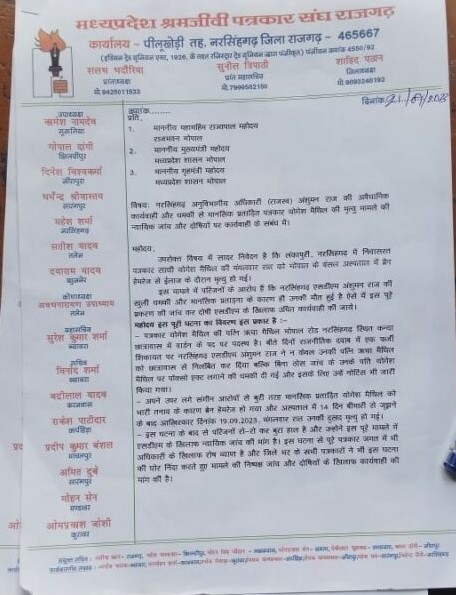 मध्यप्रदेश श्रमजीवी पत्रकार संघ राजगढ़
कार्यालय - पीलूखेड़ी तह. नरसिंहगढ़ जिला राजगढ़ - 465667
(इंडियन ट्रेड यूनियन एक्ट, 1926, के तहत रजिस्टर्ड ट्रेड यूनियन द्वारा पंजीकृत) पंजीयन क्रमांक 4550/92
शलभ भदौरिया
प्रांताध्यक्ष
मो.9425011533
सुनील त्रिपाठी
प्रांत महासचिव
मो.7999582150
शाहिद पठान
जिलाध्यक्ष
क्रमांक........
दिनांक 21/09/2023
प्रति,
1. माननीय महामहिम राज्यपाल महोदय
राजभवन भोपाल
2. माननीय मुख्यमंत्री महोदय
मध्यप्रदेश शासन भोपाल
3. माननीय गृहमंत्री महोदय
मध्यप्रदेश शासन भोपाल
विषय: नरसिंहगढ़ अनुविभागीय अधिकारी (राजस्व) अंशुमन राज की अवैधानिक
कार्यवाही और धमकी से मानसिक प्रताड़ित पत्रकार योगेश मैथिल की मृत्यु मामले की
न्यायिक जांच और दोषियों पर कार्यवाही के संबंध में।
महोदय,
उपरोक्त विषय में सादर निवेदन है कि लंकापुरी, नरसिंहगढ़ में निवासरत
पत्रकार साथी योगेश मैथिल की मंगलवार रात को भोपाल के बंसल अस्पताल में ब्रेन
हेमरेज से ईलाज के दौरान मृत्यु हो गई।
इस मामले में परिजनों के आरोप हैं कि नरसिंहगढ़ एसडीएम अंशुमन राज की
खुली धमकी और मानसिक प्रताड़ना के कारण ही उनकी मौत हुई है ऐसे में इस पूरे
प्रकरण की जांच कर दोषी एसडीएम के खिलाफ उचित कार्यवाही की जावे।
महोदय इस पूरी घटना का विवरण इस प्रकार है :-
- पत्रकार योगेश मैथिल की पत्नि ऋचा मैथिल भोपाल रोड नरसिंहगढ़ स्थित कन्या
छात्रावास में वार्डन के पद पर पदस्थ है। बीते दिनों राजनीतिक दवाब में एक फर्जी
शिकायत पर नरसिंहगढ़ एसडीएम अंशुमन राज ने न केवल उनकी पत्नि ऋचा मैथिल
को छात्रावास से निलंबित कर दिया बल्कि बिना ठोस जांच के उनके पति योगेश
मैथिल पर पॉक्सो एक्ट लगाने की धमकी दी गई और इसके लिए उन्हें नोटिस भी जारी
किया गया।
- अपने उपर लगे संगीन आरोपों से बुरी तरह मानसिक प्रताड़ित योगेश मैथिल को
भारी तनाव के कारण ब्रेन हेमरेज हो गया और अस्पताल में 14 दिन बीमारी से जूझने
के बाद आखिरकार दिनांक 19.09.2023, मंगलवार रात उनकी दुखद मृत्यु हो गई।
- इस घटना के बाद से परिजनों का रो-रो कर बुरा हाल है और उन्होंने इस पूरे मामले में
एसडीएम के खिलाफ न्यायिक जांच की मांग है। इस घटना से पूरे पत्रकार जगत में भी
अधिकारी के खिलाफ रोष व्याप्त है और जिले भर के सभी पत्रकारों ने भी इस घटना
की घोर निंदा करते हुए मामले की निष्पक्ष जांच और दोषियों के खिलाफ कार्यवाही की
मांग की है।
उपाध्यक्ष
गोपाल दांगी
दिनेश विश्वकर्मा
धर्मेन्द्र श्रीवास्तव
सारंगपुर
महेश शर्मा
नरसिंहगढ़
सतीश यादव
तलेन
दयाराम यादव
खुजनेर
कोषाध्यक्ष
अवधनारायण उपाध्याय
तलेन
महासचिव
सुरेश कुमार शर्मा
ब्यावरा
सचिव
विनोद शर्मा
ब्यावरा
बद्रीलाल यादव
राकेश पाटीदार
प्रदीप कुमार बंसल
अमित दुबे
सारंगपुर
मोहन सेन
ओमप्रकाश जोशी
कुरावर